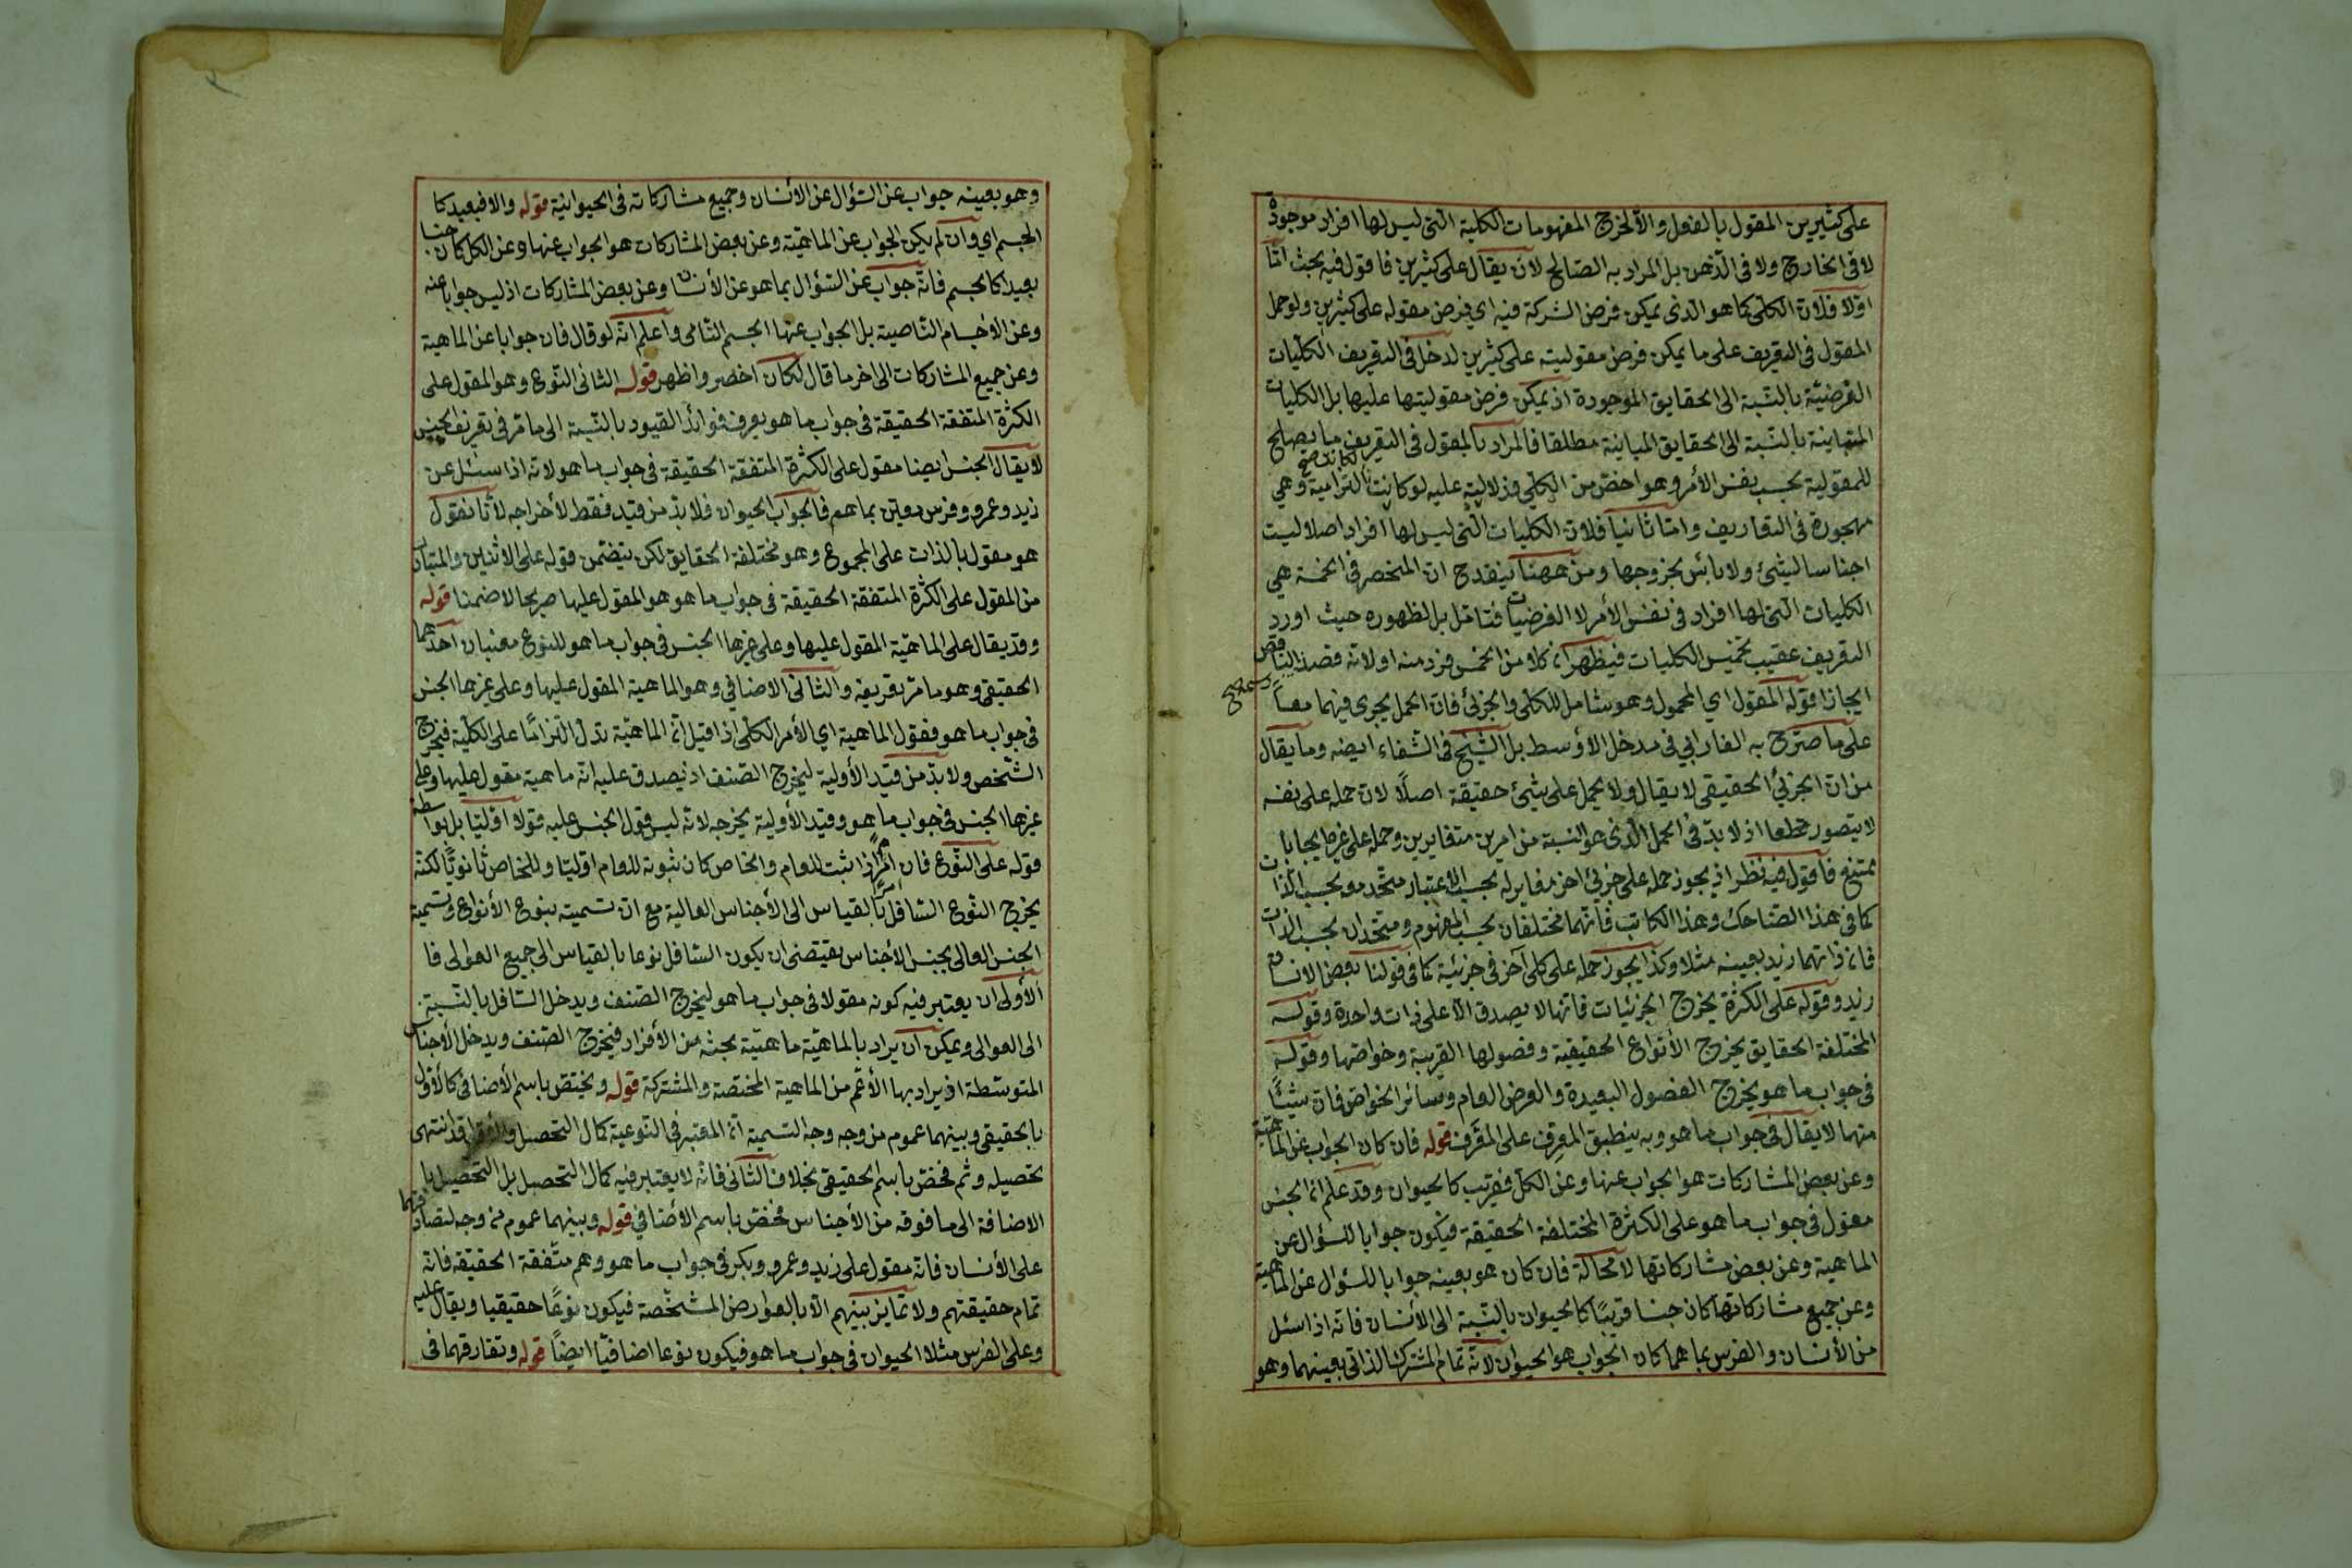 على كثيرين المقول بالفعل والا لخرج المفهومات الكلية التى ليس لها افراد موجودة
لا فى الخارج ولا فى الذهن بل المراد به الصالح لان يقال على كثيرين فاقول فيه بحث اما
اولا فلان الكلى كما هو الذى يمكن فرض الشركة فيه اي فرض مقوله على كثيرين ولو حمل
المقول فى التعريف على ما يمكن فرض مقوليته على كثيرين لدخل فى التعريف الكليات
الفرضيّة بالنسبة الى الحقايق الموجودة اذ يمكن فرض مقوليتها عليها بل الكليات
المتباينة بالنسبة الى الحقايق المباينة مطلقا فالمراد بالمقول فى التعريف ما يصلح
للمقولية بحسب نفس الأمر وهو اخص من الكلي فدلاليته عليه لو كانت التزامية وهي
مهجورة فى التعاريف واما ثانيا فلان الكليات التى ليس لها افراد اصلا ليست
اجناسا ليشئ ولا بائس بخروجها ومن ههنا ينقدح ان المنحصر فى الخمسة هي
الكليات التى لها افراد فى نفس الأمر لا الفرضيات فتامل بل لظهوره حيث اورد
التعريف عقيب تخميس الكليات فيظهر ان كلا من الخمس فرد منه او لانه قصد الناقص
ايجازا قوله المقول اي المحمول وهو شامل للكلى والجزئى فان الحمل يجرى فيهما معاً
على ما صرح به الفارابي فى مدخل الأوسط بل الشيخ فى الشفاء ايضه وما يقال
من ان الجزئي الحقيقى لا يقال ولا يحمل على شيئ حقيقة اصلاً لان حمله على نفسه
لا يتصور قطعا اذ لا بدّ فى الحمل الذى هو النسبة من امرين متغايرين وحمله على غيره ايجابا
ممتنع فاقول فيه نظر اذ يجوز حمله على جزئى اخر مغاير له بحسب الاعتبار متحد معه بحسب الذات
كما فى هذا الضاحك وهذا الكاتب فانهما مختلفان بحسب المفهوم ومتحدان بحسب الذات
فان ذاتهما زيد بعينه مثلا وكذا يجوز حمله على كلى آخر فى جزئية كما فى قولنا بعض الانسان
زيد وقوله على الكثرة يخرج الجزئيات فانها لا يصدق الا على ذات واحدة وقوله
المختلفة الحقايق يخرج الأنواع الحقيقية وفصولها القريبة وخواصها وقوله
فى جواب ما هو يخرج الفصول البعيدة والعرض العام وسائر الخواص فان شيئًا
منهما لا يقال فى جواب ما هو وبه ينطبق المعرِف على المعرَف قوله فان كان الجواب عن الماهية
وعن بعض المشاركات هو الجواب عنها وعن الكل فقريب كالحيوان وقد علم ان الجنس
مقول فى جواب ما هو على الكثرة المختلفة الحقيقة فيكون جوابا للسؤال عن
الماهية وعن بعض مشاركاتها لا محالة فان كان هو بعينه جوابا للسؤال عن الماهية
وعن جميع مشاركاتها كان جنسا قريبًا كالحيوان بالنسبة الى الأنسان فانه اذا سئل
من الأنسان والفرس بما هما كان الجواب هو الحيوان لانه تمام المشترك الذاتى بعينهما وهو
وهو بعينه جواب عن السؤال عن الأنسان وجميع مشاركاته فى الحيوانية قوله والا فبعيد كا
الجسم اي وان لم يكن الجواب عن الماهيّة وعن بعض المشاركات هو الجواب عنها وعن الكل كان جنسا
بعيدا كالجسم فانّه جواب عن السّؤال بما هو عن الأنسان وعن بعض المشاركات اذ ليس جوابا عنه
وعن الأجسام النّامية بل الجواب عنها الجسم النّامى واعلم انّه لو قال فان جوابا عن الماهية
وعن جميع المشاركات الى اخر ما قال لكان اخصر واظهر قوله الثانى النّوع وهو المقول على
الكثرة المتفقة الحقيقة فى جواب ما هو يعرف فوائد القيود بالنّسبة الى ما مرّ فى تعريف الجنس
لا يقال الجنس ايضا مقول على الكثرة المتفقة الحقيقة فى جواب ما هو لانه اذا سئل عن
زيد وعمرو وفرس معين بما هم فالجواب الحيوان فلا بدّ من قيد فقط لأخراجه لأنّا نقول
هو مقول بالذات على المجموع وهو مختلفة الحقايق لكن يتضمن قوله على الاثنين والمتبادر
من المقول على الكثرة المتفقة الحقيقة فى جواب ما هو هو المقول عليها صريحا لا ضمنا قوله
وقد يقال على الماهيّة المقول عليها وعلى غيرها الجنس فى جواب ما هو للنوع معنيان احدهما
الحقيقى وهو ما مرّ تعريفه والثانى الاضافي وهو الماهية المقول عليها وعلى غيرها الجنس
فى جواب ما هو فقول الماهية اي الأمر الكلّى اذا قيل انّ الماهيّة تدلّ التزامًا على الكليّة فيخرج
الشّخص ولا بدّ من قيد الأولية ليخرج الصّنف اذ يصدق عليه انه ماهية مقول عليها وعلى
غيرها الجنس فى جواب ما هو وقيد الأولية يخرجه لانّه ليس قول الجنس عليه قولا اوّليّا بل بواسطة
قوله على النّوع فان امرًا اذا ثبت للعام والخاص كان ثبوته للعام اوّليّا وللخاص ثانويًّا لكنّه
يخرج النّوع السّافل بالقياس الى الأجناس العالية مع ان تسميته بنوع الأنواع وتسمية
الجنس العالى بجنس الأجناس يقتضى ان يكون السّافل نوعا بالقياس الى جميع العوالى فا
الأولى ان يعتبر فيه كونه مقولا فى جواب ما هو ليخرج الصّنف ويدخل السّافل بالنّسبة
الى العوالى ويمكن ان يراد بالماهيّة ماهيّة بحثه من الأفراد فيخرج الصّنف ويدخل الأجناس
المتوسّطة اذ يراد بها الأعمّ من الماهية المختصّة والمشتركة قوله ويختصّ باسم الأضافى كالأوّل
بالحقيقى وبينهما عموم من وجه وجه التسمية انّ المعتبر فى النّوعية كمال التحصيل قد انتهى
تحصيله وثم فخصّ باسم الحقيقى بخلاف الثّانى فانّه لا يعتبر فيه كمال التحصيل بل التحصيل با
الاضافة الى ما فوقه من الأجناس فخصّ باسم الأضافي قوله وبينهما عموم من وجه لتصادقهما
على الأنسان فانّه مقول على زيد وعمرو وبكر فى جواب ما هو وهم متّفقة الحقيقة فانّه
تمام حقيقتهم ولا تمايز بينهم الاّ بالعوارض المشخّصة فيكون نوعًا حقيقيا ويقال عليه
وعلى الفرس مثلا الحيوان فى جواب ما هو فيكون نوعا اضافيّا ايضًا قوله وتفارقهما فى